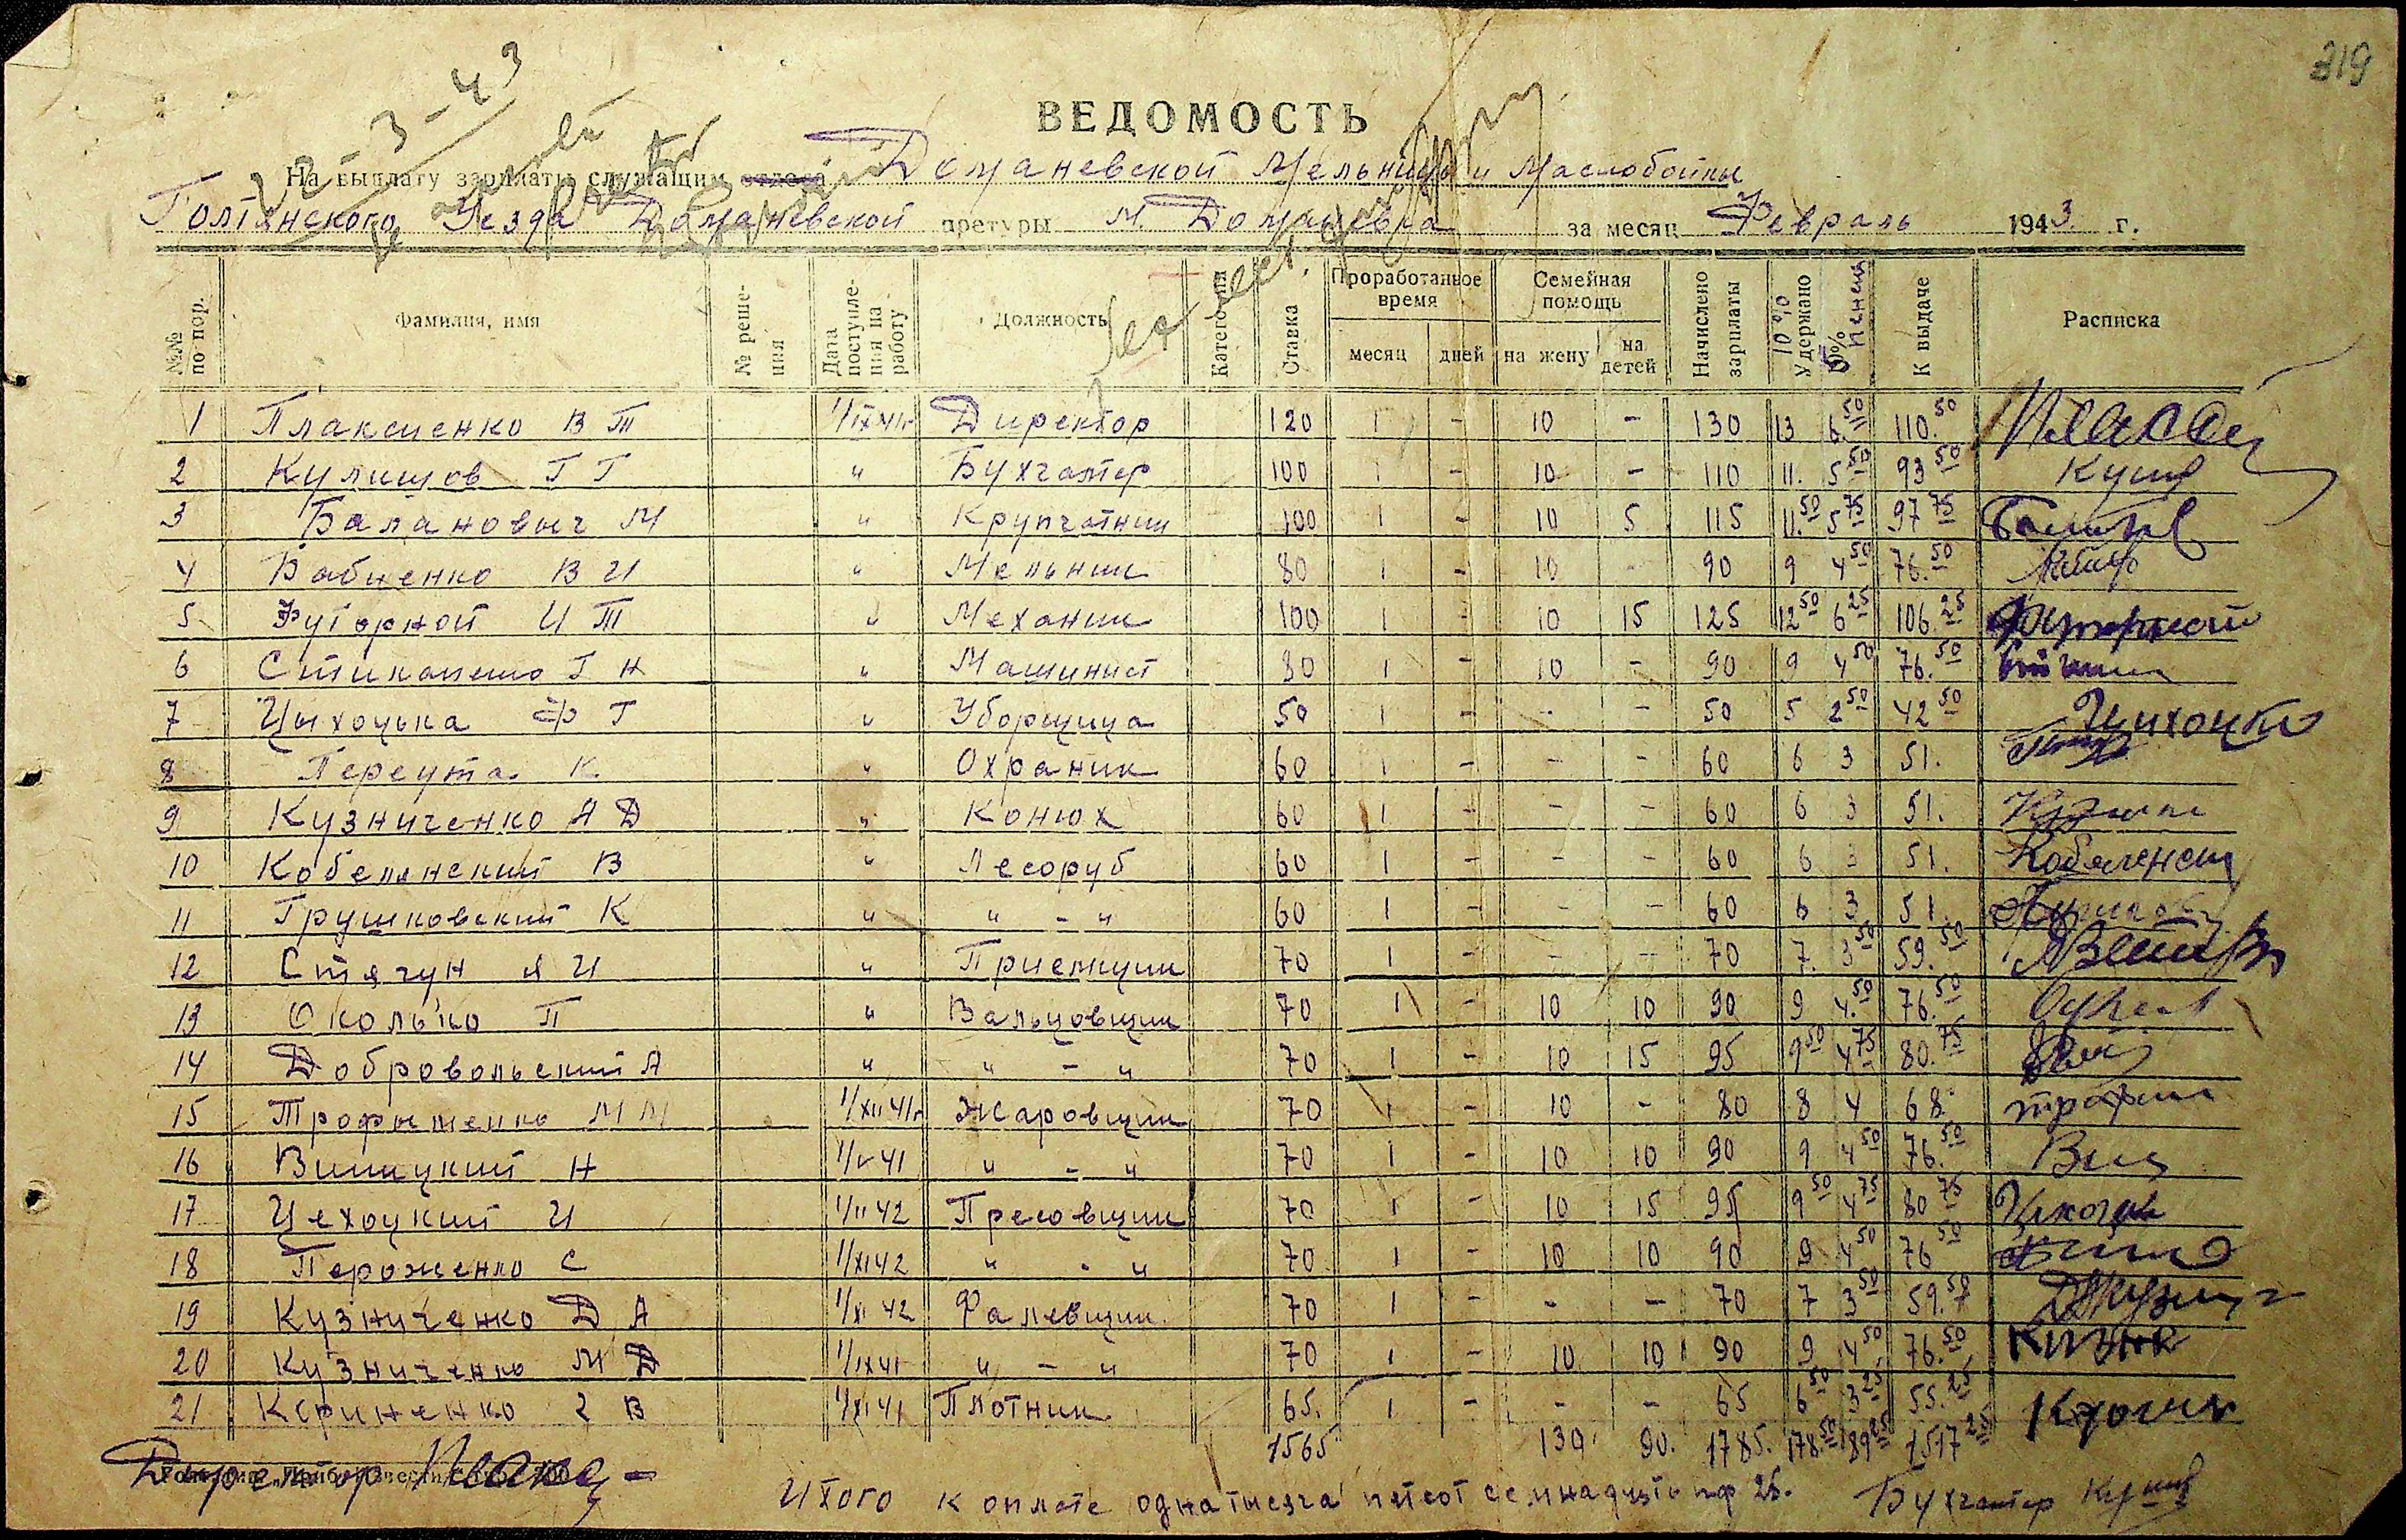 319
3-43
ВЕДОМОСТЬ
На выплату зарплаты служащим отдела Доманевской Мельницы и Маслобойки
Голтянского Уезда Доманевской претуры М. Доманевка за месяц Февраль 1943 г.
№№ по пор. Фамилия, имя № реше-ния Дата поступле-ния на работу Должность Категория Ставка Проработанное время Семейная помощь Начислено зарплаты 10% Удержано 5% пенсия К выдаче Расписка
месяц дней на жену на детей
1 Плаксиенко В Т 1/IX 41г Директор 120 1 - 10 - 130 13 6.50 110.50
2 Кулишов Г Г " Бухгалтер 100 1 - 10 - 110 11. 5 50 93 50
3 Баланович М " Крупчатник 100 1 - 10 5 115 11.50 5 75 97 75
4 Бабиенко В И " Мельник 80 1 - 10 - 90 9 4 50 76.50
5 Футорной И Т " Механик 100 1 - 10 15 125 12 50 6 25 106.25 Футорной
6 Г Н " Машинист 80 1 - 10 - 90 9 4 50 76.50
7 Цыхоцька Ф Г " Уборщица 50 1 - - - 50 5 2 50 42 50
8 Переута К " Охраник 60 1 - - - 60 6 3 51.
9 Кузниченко А Д " Конюх 60 1 - - - 60 6 3 51.
10 Кобелянский В " Лесоруб 60 1 - - - 60 6 3 51.
11 Грушковский К " " - " 60 1 - - - 60 6 3 51
12 Стягун А И " Приемщик 70 1 - - - 70 7. 3 50 59.50
13 Околько П " Вальцовщик 70 1 - 10 10 90 9 4.50 76.50
14 Добровольский А " " - " 70 1 - 10 15 95 9 50 4 75 80.75
15 Трофименко М М 1/XII 41г Жаровщик 70 1 - 10 - 80 8 4 68.
16 Н 1/V 41 " - " 70 1 - 10 10 90 9 4 50 76.50
17 Цехоцкий И 1/II 42 Пресовщик 70 1 - 10 15 95 9 50 4 75 80 75
18 Пероженко С 1/XI 42 " - " 70 1 - 10 10 90 9 4 50 76 50
19 Кузниченко Д А 1/XI 42 Фалевщик 70 1 - - - 70 7 3 50 59.50
20 Кузниченко М Д 1/IX 41 " - " 70 1 - 10 10 90 9 4 50 76.50
21 В 1/XI 41 Плотник 65. 1 - - - 65 6 50 3 25 55.25
1565 130 90. 1785. 178 50 89 25 1517 25
Директор
Итого к оплате одна тисяча пятсот семнадцять пф 25. Бухгалтер